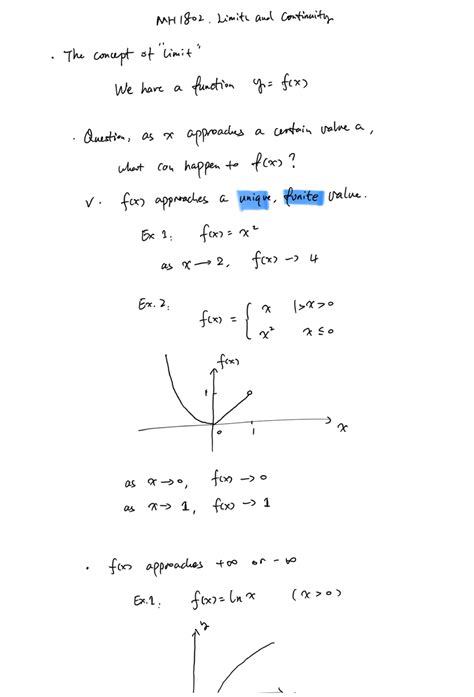 MH1802. Limits and Continuity
· The concept of "Limit"
We have a function y = f(x)
· Question, as x approaches a certain value a,
what can happen to f(x)?
v. f(x) approaches a unique, finite value.
Ex 1: f(x) = x²
as x → 2, f(x) → 4
Ex. 2: f(x) = { x 1>x>0
x² x ≤ 0
f(x)
1
0 1 x
as x → 0, f(x) → 0
as x → 1, f(x) → 1
· f(x) approaches +∞ or -∞
Ex.1: f(x) = ln x (x>0)
y